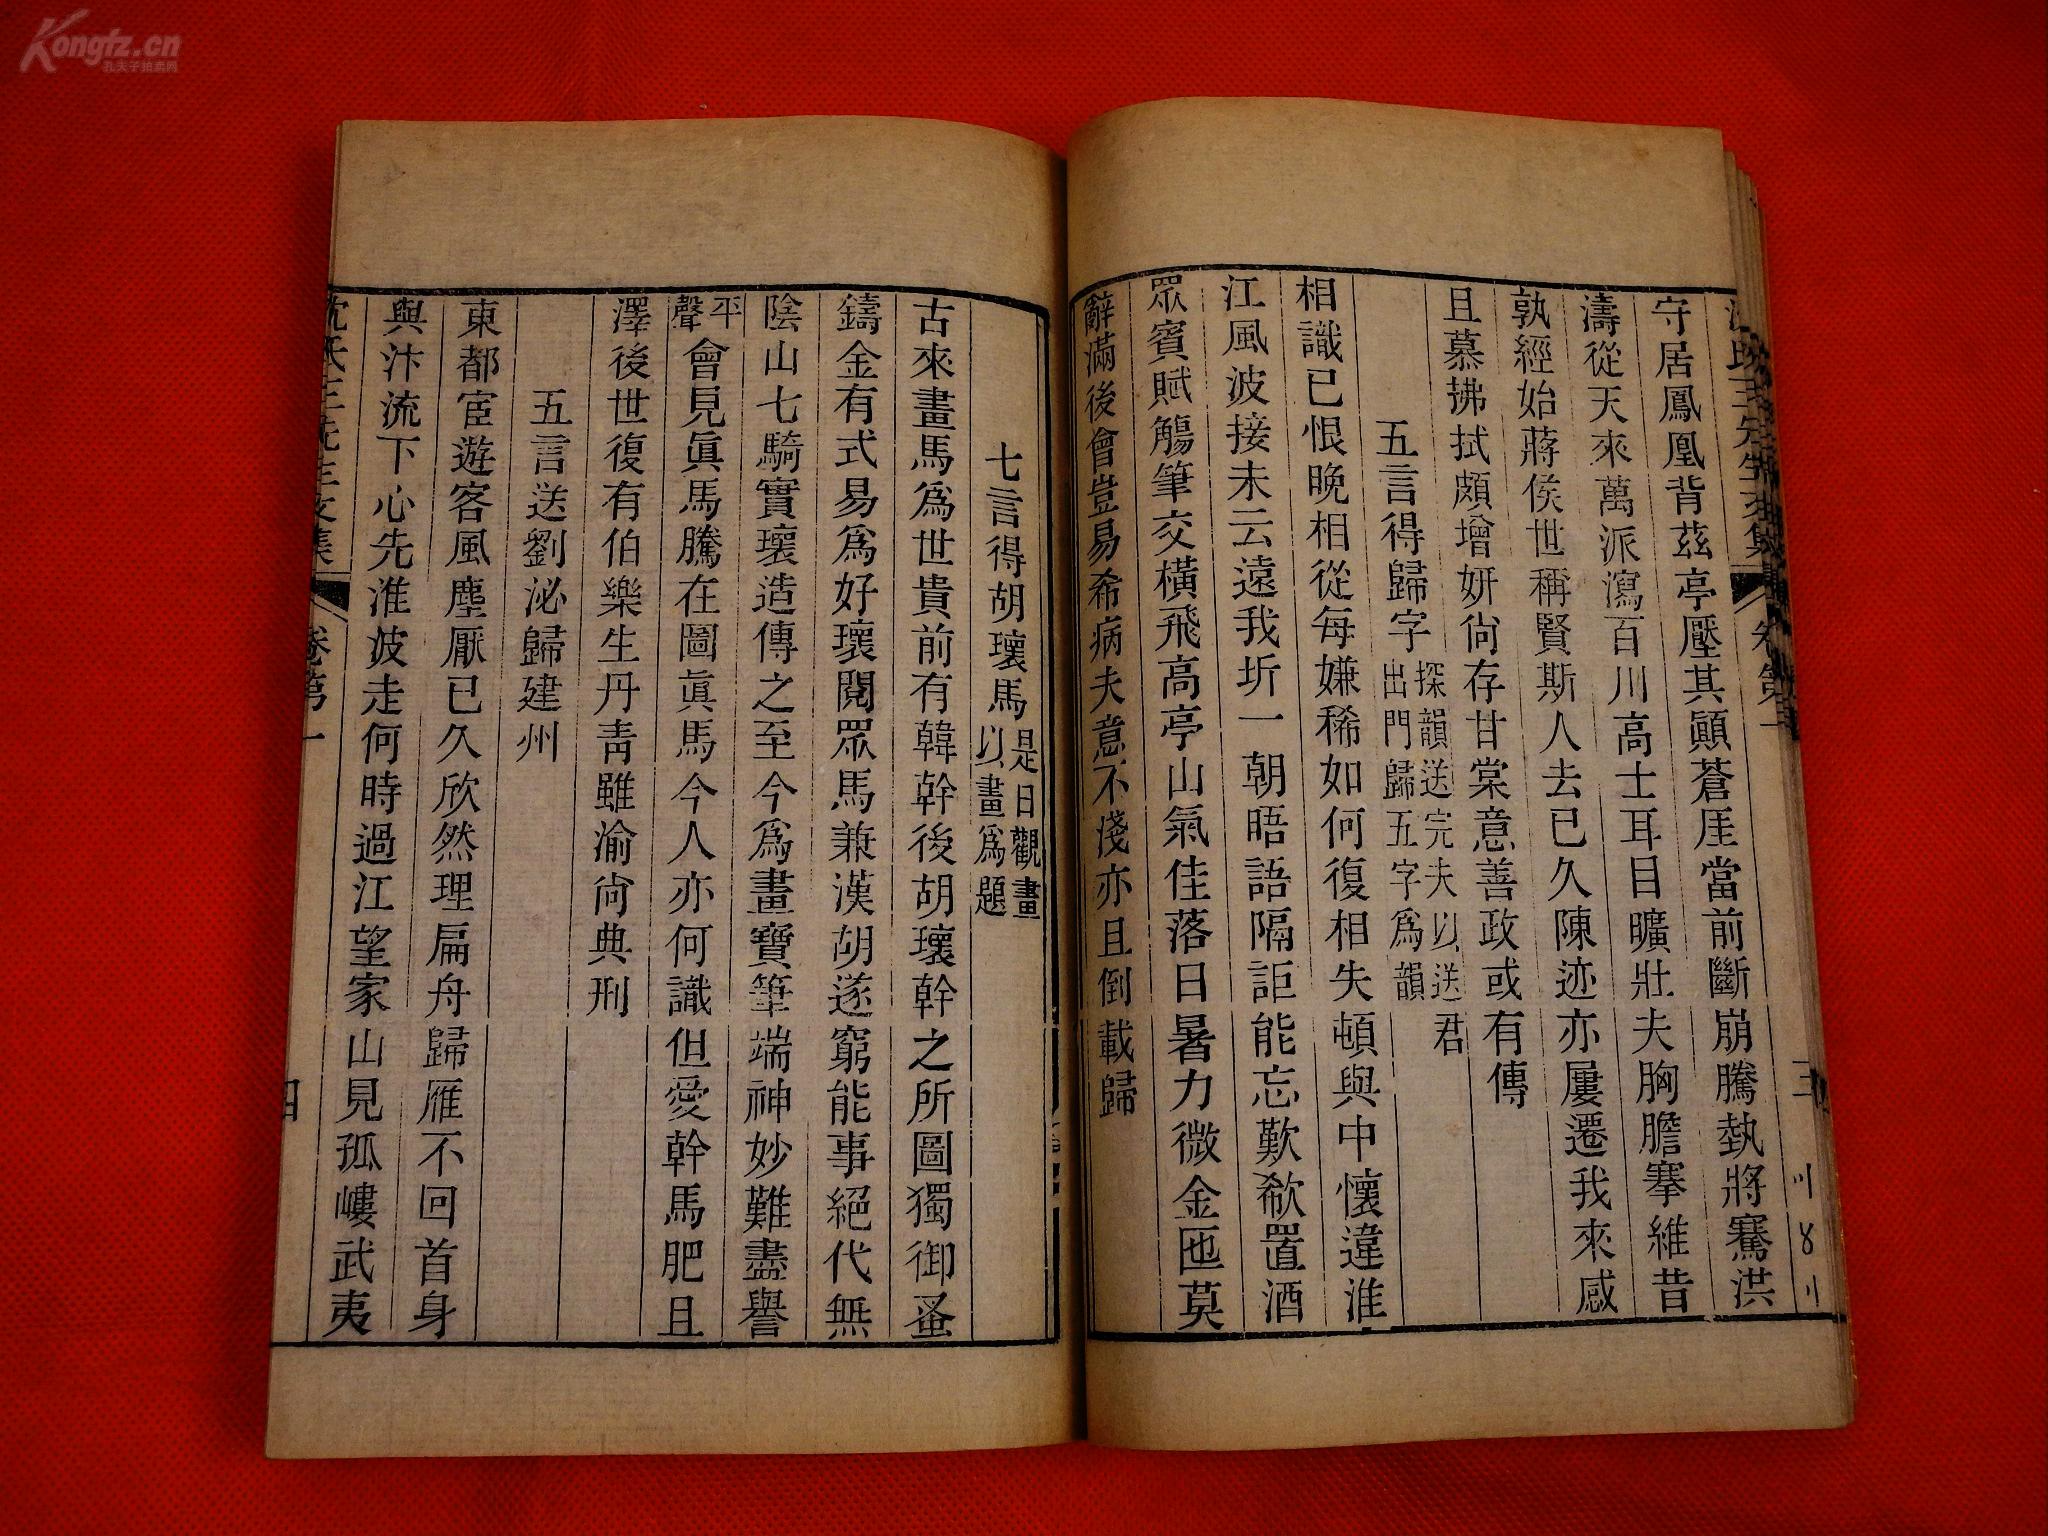 Kongfz.cn
孔夫子拍卖网
守居鳳凰背茲亭壓其顚蒼厓當前斷崩騰埶將騫洪
濤從天來萬派瀉百川高士耳目曠壯夫胸膽搴維昔
孰經始蔣侯世稱賢斯人去已久陳迹亦屢遷我來感
且慕拂拭頗增妍尙存甘棠意善政或有傳
五言得歸字探韻送完夫以送君
出門歸五字爲韻
相識已恨晚相從每嫌稀如何復相失頓與中懷違淮
江風波接未云遠我圻一朝晤語隔詎能忘歎欷置酒
眾賓賦觴筆交橫飛高亭山氣佳落日暑力微金匜莫
辭滿後會豈易希病夫意不淺亦且倒載歸
七言得胡瓌馬是日觀畫
以畫爲題
古來畫馬爲世貴前有韓幹後胡瓌幹之所圖獨御蚤
鑄金有式易爲好瓌閱眾馬兼漢胡遂窮能事絕代無
陰山七騎實瓌造傳之至今爲畫寶筆端神妙難盡譽
平
聲會見眞馬騰在圖眞馬今人亦何識但愛幹馬肥且
澤後世復有伯樂生丹靑雖渝尙典刑
五言送劉泌歸建州
東都宦遊客風塵厭已久欣然理扁舟歸雁不回首身
與汴流下心先淮波走何時過江望家山見孤嶁武夷
沈氏三先生文集 卷第一 四